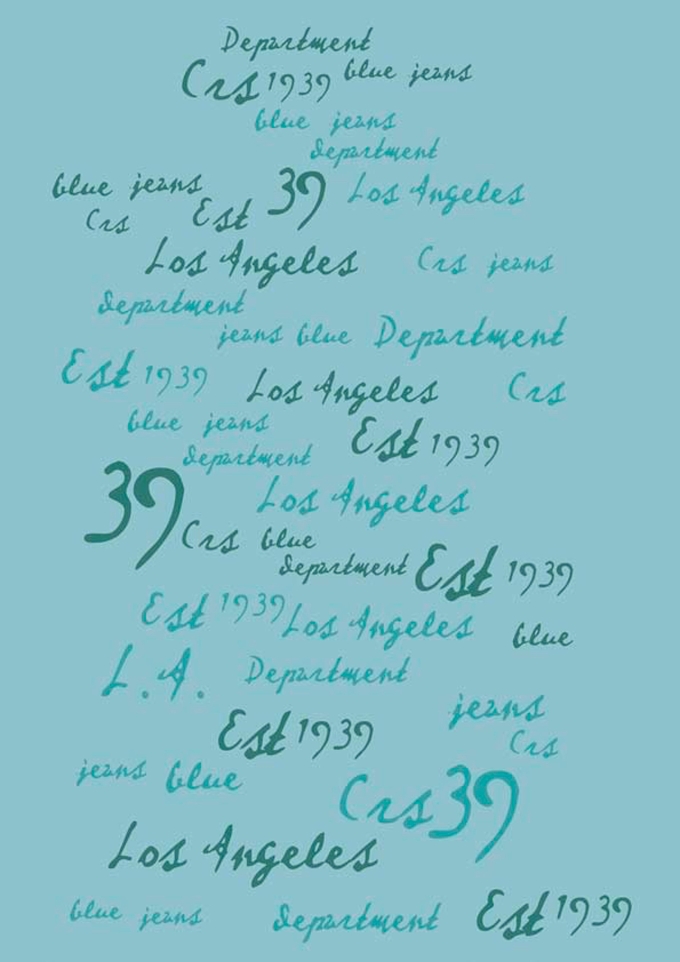 Department
Crs 1939 blue jeans
blue jeans
department
blue jeans 39 Los Angeles
Crs Est
Los Angeles Crs jeans
department
jeans blue Department
Est 1939 Los Angeles Crs
blue jeans Est 1939
department
39 Los Angeles
Crs blue
department Est 1939
Est 1939 Los Angeles blue
L.A. Department
jeans
Est 1939 Crs
jeans blue Crs 39
Los Angeles
blue jeans department Est 1939